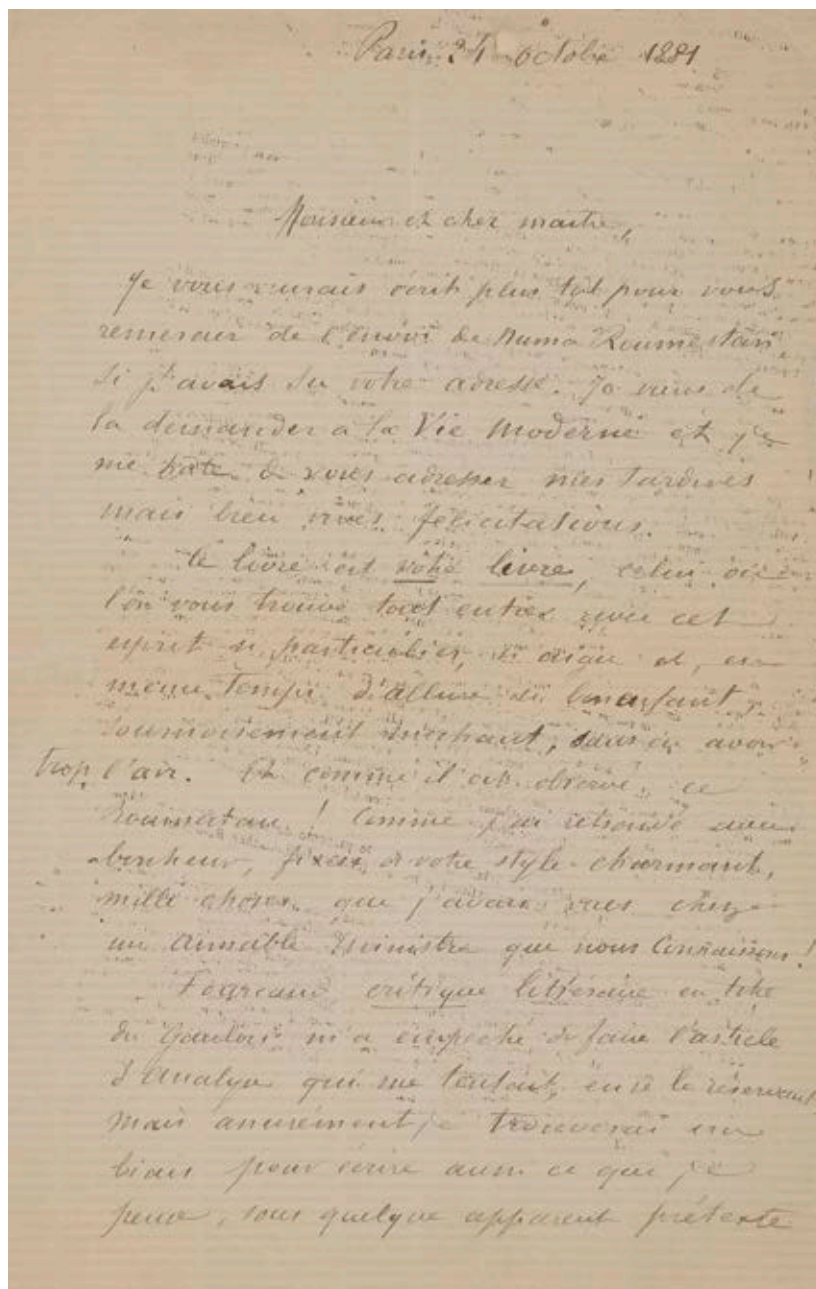 Paris octobre 1881
Monsieur et cher maître,
Je vous aurais écrit plus tôt pour vous
remercier de l'envoi de Numa Roumestan
si j'avais su votre adresse. Je viens de
la demander à la Vie Moderne et je
me hâte de vous adresser mes tardives
mais bien vives félicitations.
Ce livre est votre livre, celui où
l'on vous trouve tout entier avec cet
esprit si particulier, si aigu et, en
même temps d'allure si bonenfant,
sournoisement méchant, sans en avoir
trop l'air. Et comme il est observé, ce
Roumestan ! Comme j'ai retrouvé avec
bonheur, fixées de votre style charmant,
mille choses que j'avais vues chez
un aimable ministre que nous connaissons !
critique littéraire en titre
du Gaulois m'a empêché de faire l'article
d'analyse qui me tentait, en se le réservant
mais assurément je trouverai un
biais pour écrire aussi ce que je
pense, sous quelque apparent prétexte